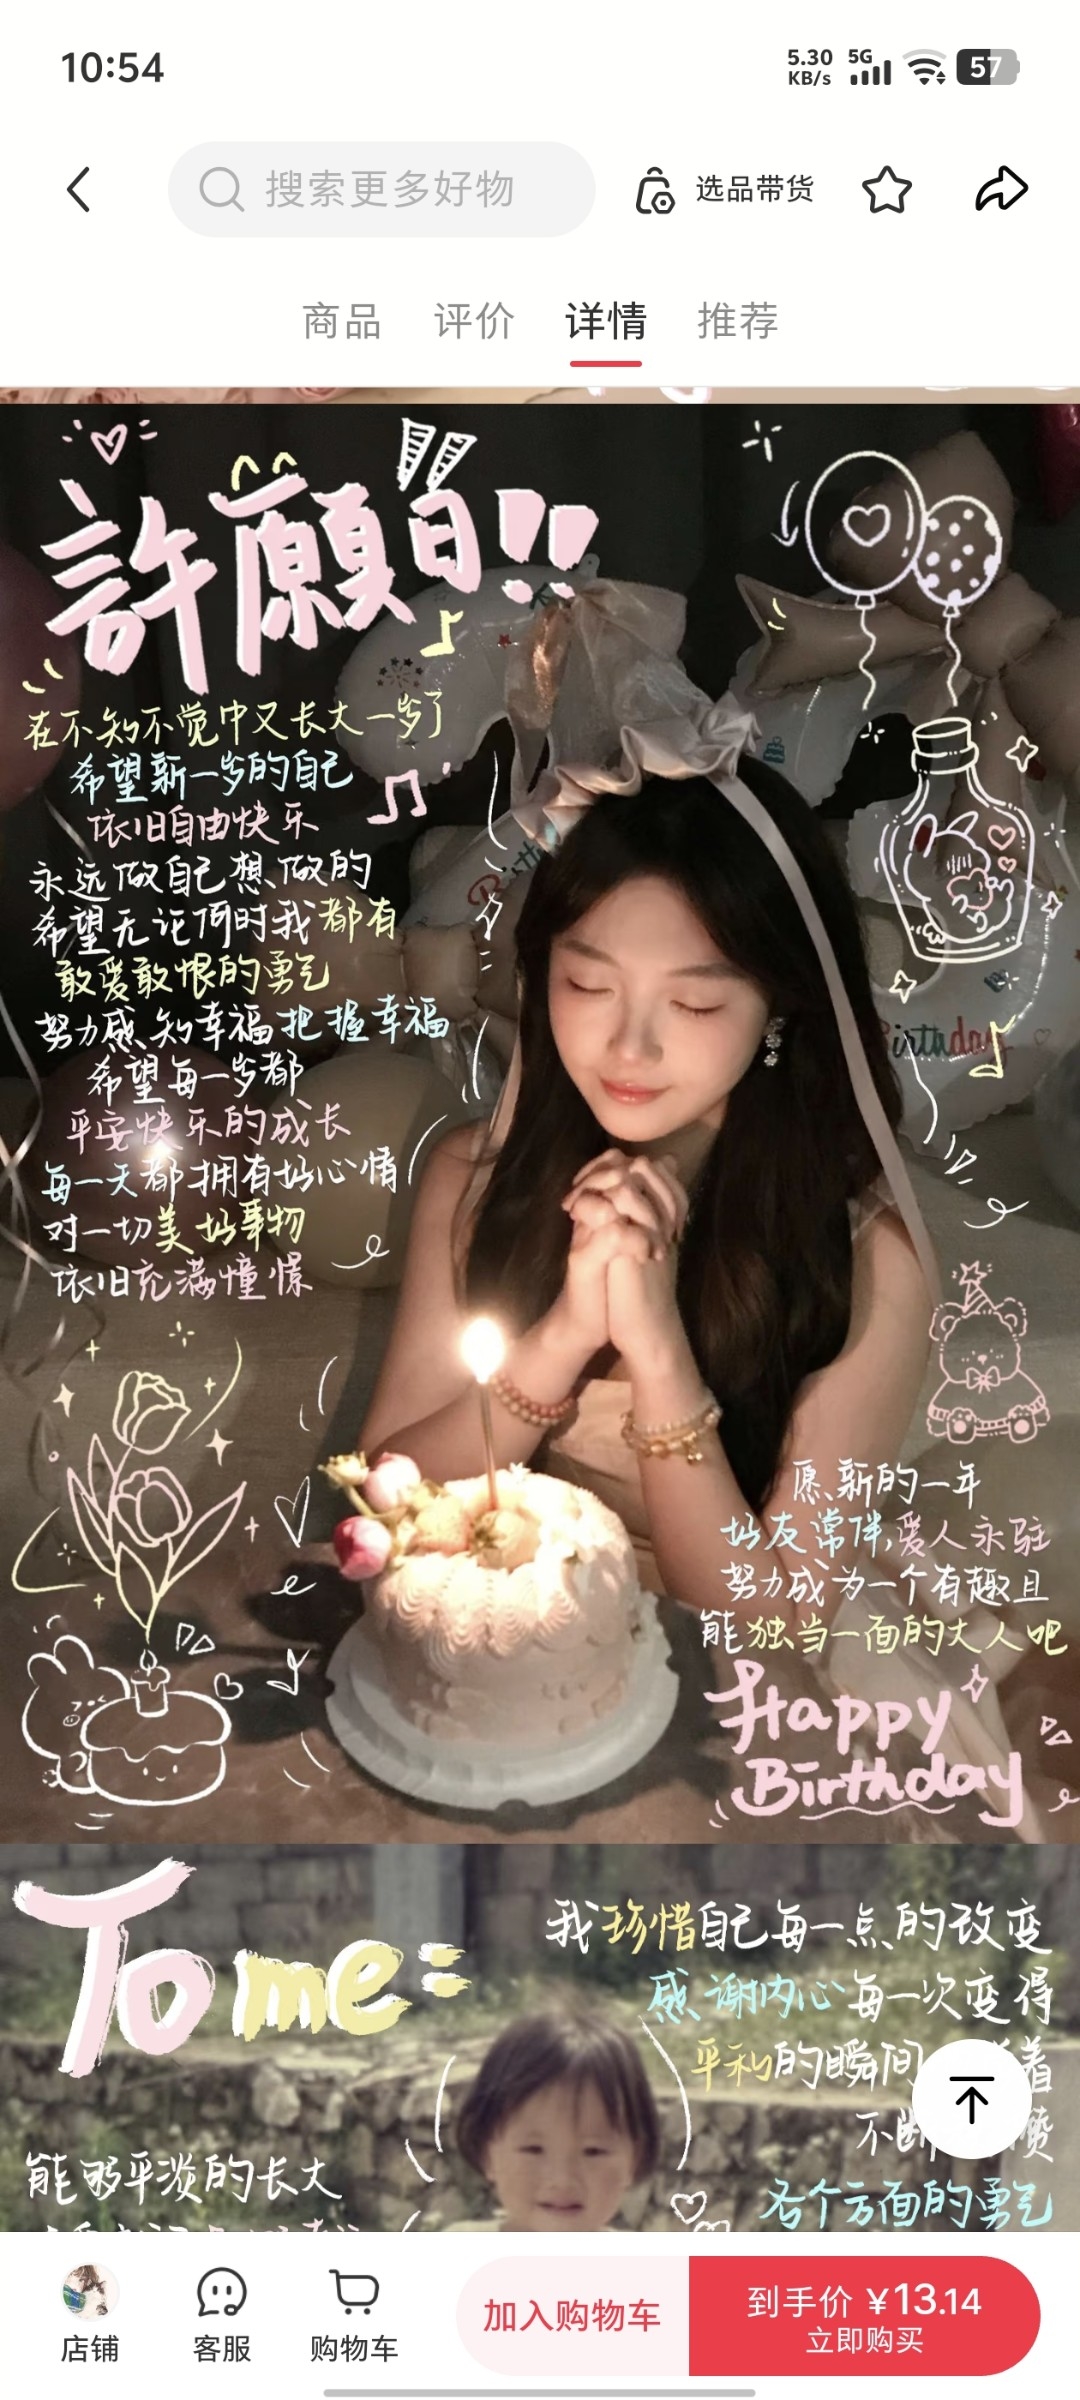 10:54
5.30 KB/s
5G
57
搜索更多好物
选品带货
商品 评价 详情 推荐
許願日!!
在不知不觉中又长大一岁了
希望新一岁的自己
依旧自由快乐
永远做自己想做的
希望无论何时我都有
敢爱敢恨的勇气
努力感知幸福把握幸福
希望每一岁都
平安快乐的成长
每一天都拥有好心情
对一切美好事物
依旧充满憧憬
Birthday
愿新的一年
好友常伴,爱人永驻
努力成为一个有趣且
能独当一面的大人吧
Happy
Birthday
To me:
我珍惜自己每一点的改变
感谢内心每一次变得
平和的瞬间
着
不断
各个方面的勇气
能够平淡的长大
店铺
客服
购物车
加入购物车
到手价 ¥13.14
立即购买